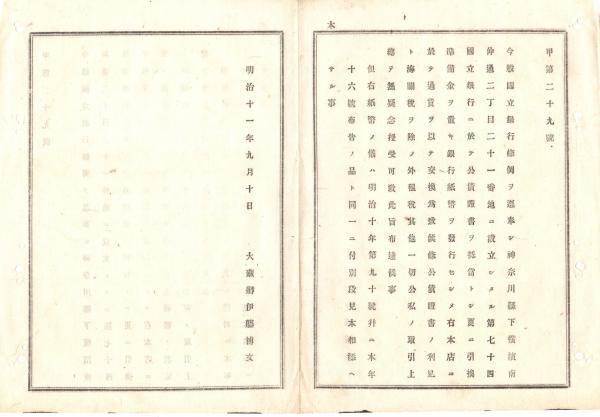 本
甲第二十九號
今般國立銀行條例ヲ遵奉シ神奈川縣下橫濱南
仲通二丁目二十一番地ニ設立シタル第七十四
國立銀行ニ於テ公債證書ヲ抵當トシ更ニ引換
準備金ヲ置キ銀行紙幣ヲ發行セシメ右本店ニ
於テ通貨ヲ以テ交換爲致候條公債證書ノ利足
ト海關稅ヲ除ノ外租稅其他一切公私ノ取引上
總テ無疑念授受可致此旨布達候事
但右紙幣ノ儀ハ明治十年第九十號幷ニ本年
十六號布告ノ品ト同一ニ付別段見本相添ヘ
サル事
明治十一年九月十日
大藏卿伊藤博文